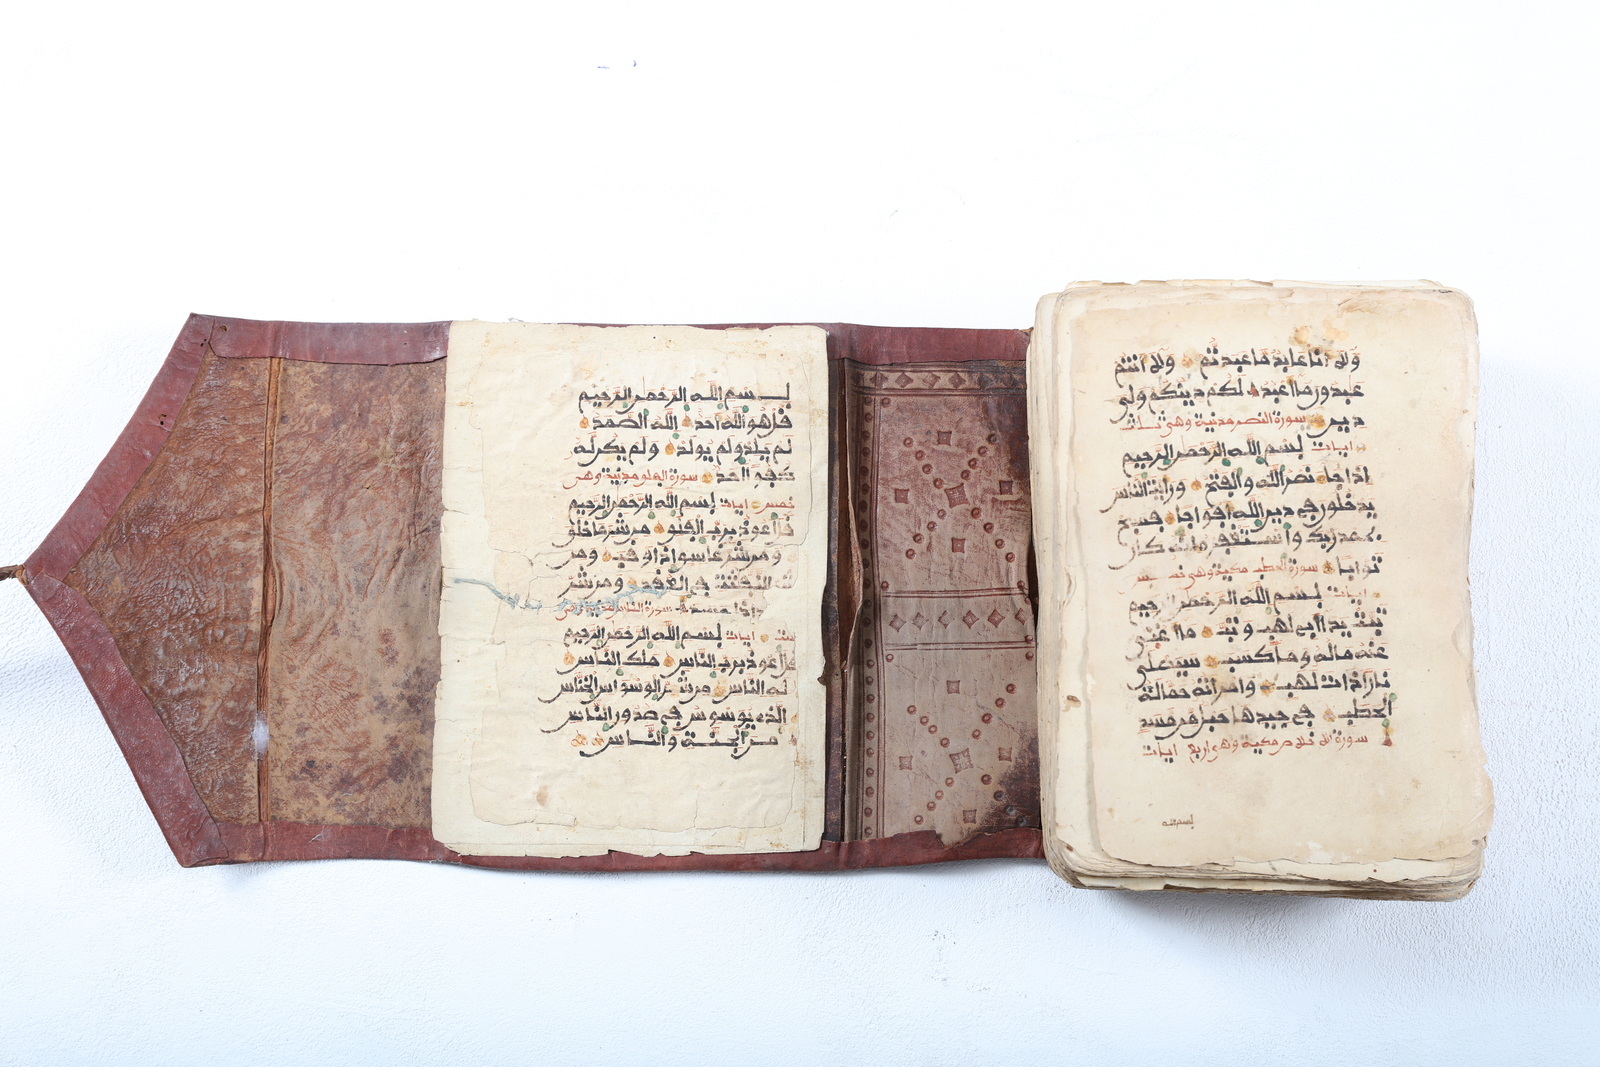 ولا انا عابد ما عبدتم ولا انتم
عبدون ما اعبد لكم دينكم ولي
دين سورة النصر مدنية وهي ثلث
ايات بسم الله الرحمن الرحيم
اذا جا نصر الله والفتح ورايت الناس
يدخلون في دين الله افواجا فسبح
بحمد ربك واستغفره انه كان
توابا سورة الحطب مكية وهي خمس
ايات بسم الله الرحمن الرحيم
تبت يدا ابي لهب وتب ما اغنى
عنه ماله وما كسب سيصلى
نارا ذات لهب وامراته حمالة
الحطب في جيدها حبل من مسد
سورة الاخلاص مكية وهي اربع ايات
بسم الله
بسم الله الرحمن الرحيم
قل هو الله احد الله الصمد
لم يلد ولم يولد ولم يكن له
كفوا احد سورة الفلق مدنية وهي
خمس ايات بسم الله الرحمن الرحيم
قل اعوذ برب الفلق من شر ما خلق
ومن شر غاسق اذا وقب ومن
شر النفثت في العقد ومن شر
حاسد اذا حسد سورة الناس مدنية وهي
ست ايات بسم الله الرحمن الرحيم
قل اعوذ برب الناس ملك الناس
اله الناس من شر الوسواس الخناس
الذي يوسوس في صدور الناس
من الجنة والناس